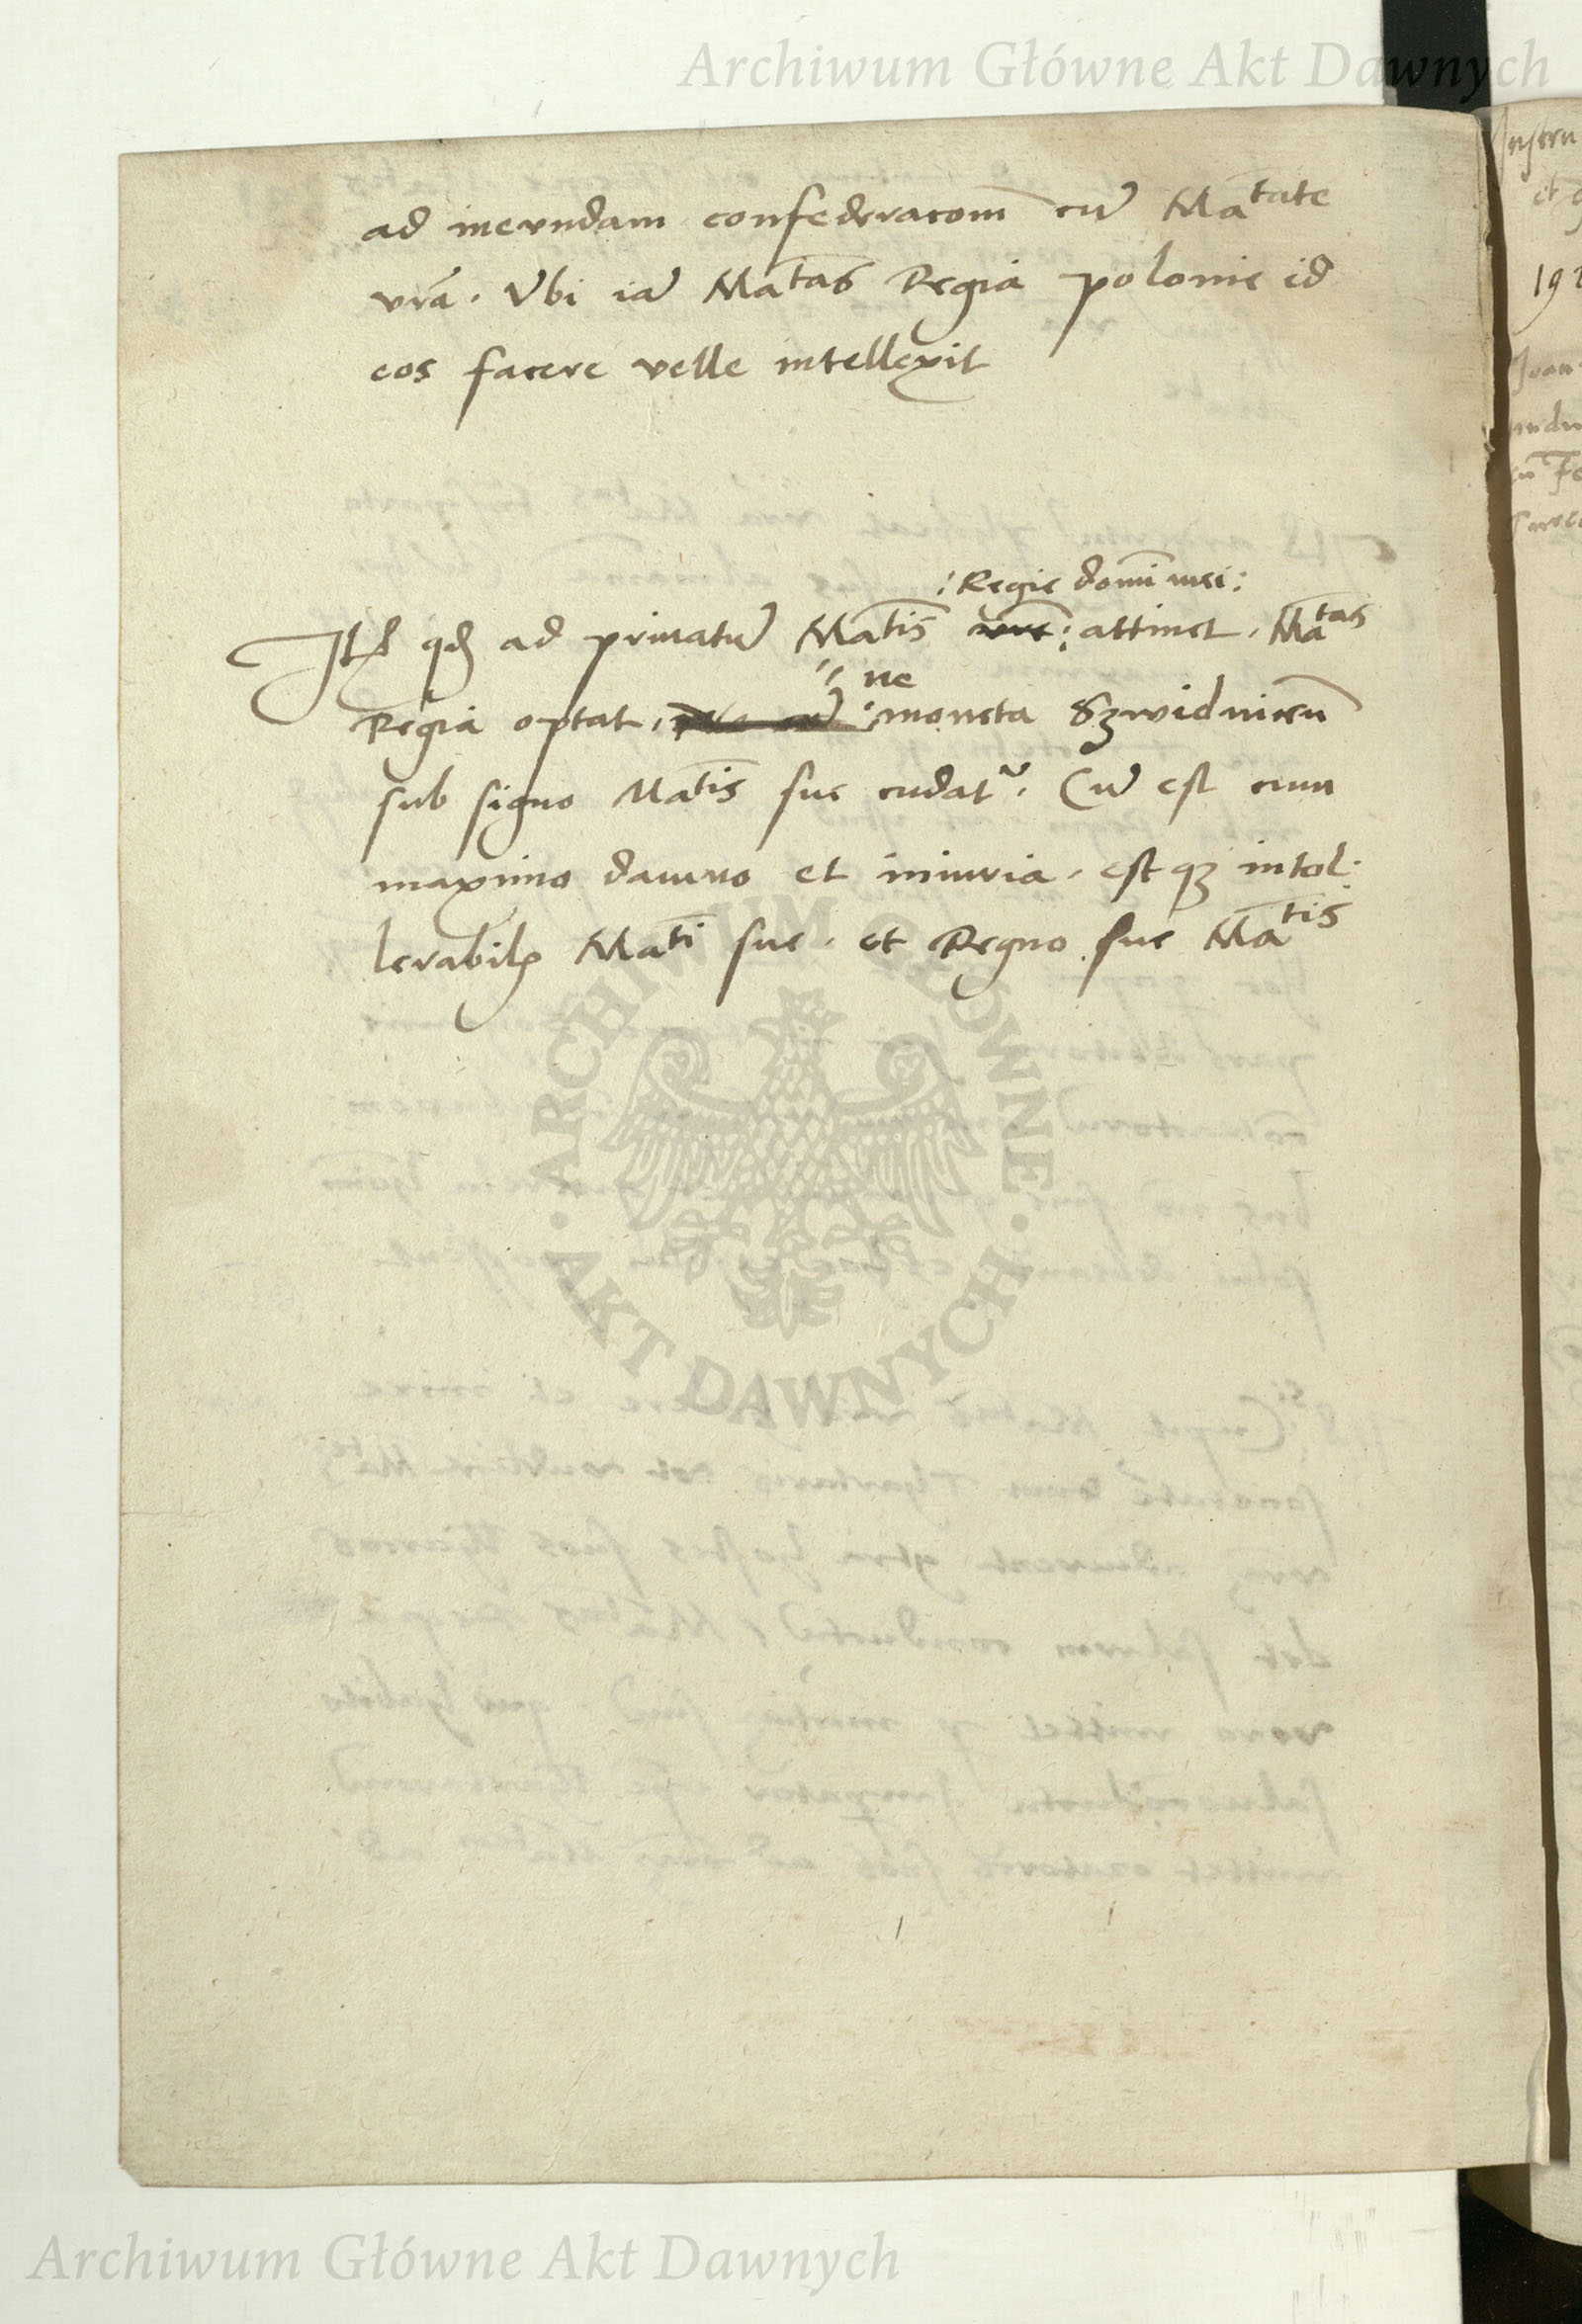 Archiwum Główne Akt Dawnych
ad ineundam confederacom̄ cū Matate
vrā. Vbi iā Matas Regia polonie id
eos facere velle intellexit
:Regie domī mei:
Itē qd ad priuatū Matis vre: attinet, Matas
ne
Regia optat, :moneta Szwidniceñ
sub signo Matis sue cudatr. Cū est cum
maximo damno et iniuria, estqз intol.
lerabile Mati sue, et Regno sue Matis
ARCHIWUM GŁÓWNE
AKT DAWNYCH
Archiwum Główne Akt Dawnych